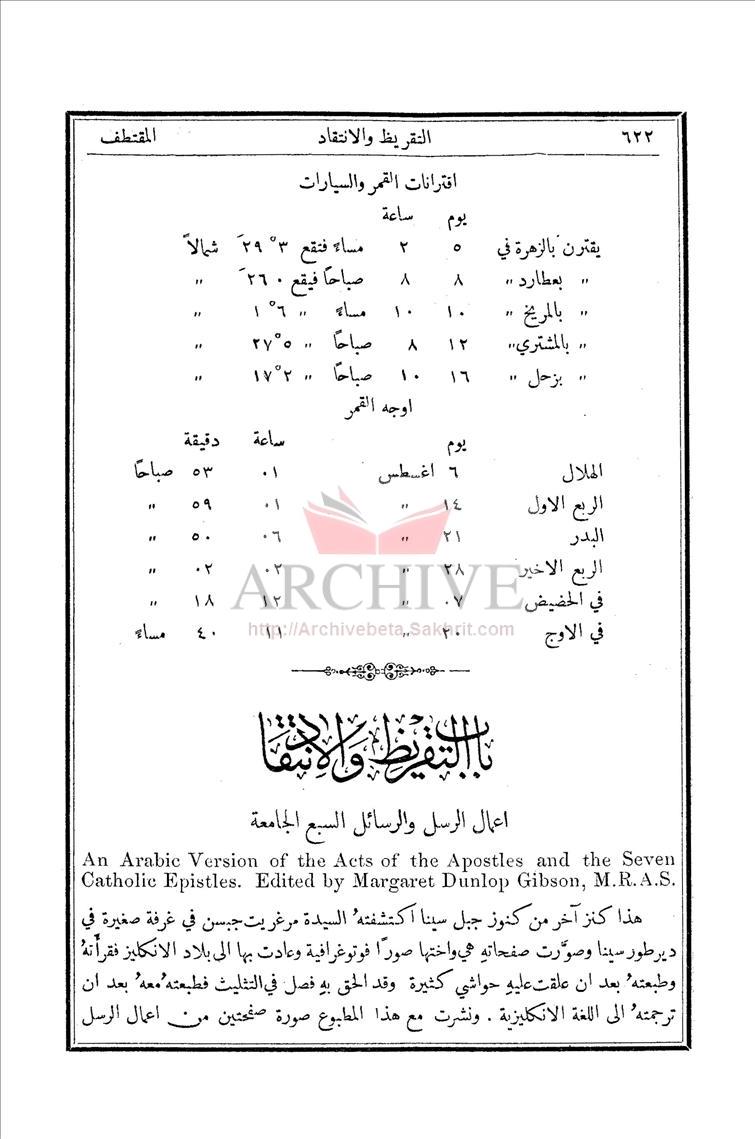 ٦٢٢ التقريظ والانتقاد المقتطف
اقترانات القمر والسيارات
يوم ساعة
يقترن بالزهرة في ٥ ٢ مساءً فتقع ٣° ٢٩َ شمالاً
" بعطارد " ٨ ٨ صباحًا فيقع ٠ ٢٦َ "
" بالمريخ " ١٠ ١٠ مساءً " ٦° ١ "
" بالمشتري " ١٢ ٨ صباحًا " ٥° ٢٧ "
" بزحل " ١٦ ١٠ صباحًا " ٢° ١٧ "
اوجه القمر
يوم ساعة دقيقة
الهلال ٦ اغسطس ٠١ ٥٣ صباحًا
الربع الاول ١٤ " ٠١ ٥٩ "
البدر ٢١ " ٠٦ ٥٠ "
الربع الاخير ٢٨ " ٠٢ ٠٢ "
في الحضيض ٠٧ " ١٢ ١٨ "
في الاوج ٢٠ " ١١ ٤٠ مساءً
ARCHIVE
http://Archivebeta.Sakhrit.com
باب التقريظ والانتقاد
اعمال الرسل والرسائل السبع الجامعة
An Arabic Version of the Acts of the Apostles and the Seven
Catholic Epistles. Edited by Margaret Dunlop Gibson, M.R.A.S.
هذا كنز آخر من كنوز جبل سينا اكتشفتهُ السيدة مرغريت جبسن في غرفة صغيرة في
دير طور سينا وصوَّرت صفحاته هي واختها صورًا فوتوغرافية وعادت بها الى بلاد الانكليز فقرأتهُ
وطبعتهُ بعد ان علقت عليهِ حواشي كثيرة وقد الحق بهِ فصل في التثليث فطبعتهُ معهُ بعد ان
ترجمتهُ الى اللغة الانكليزية . ونشرت مع هذا المطبوع صورة صفحتين من اعمال الرسل